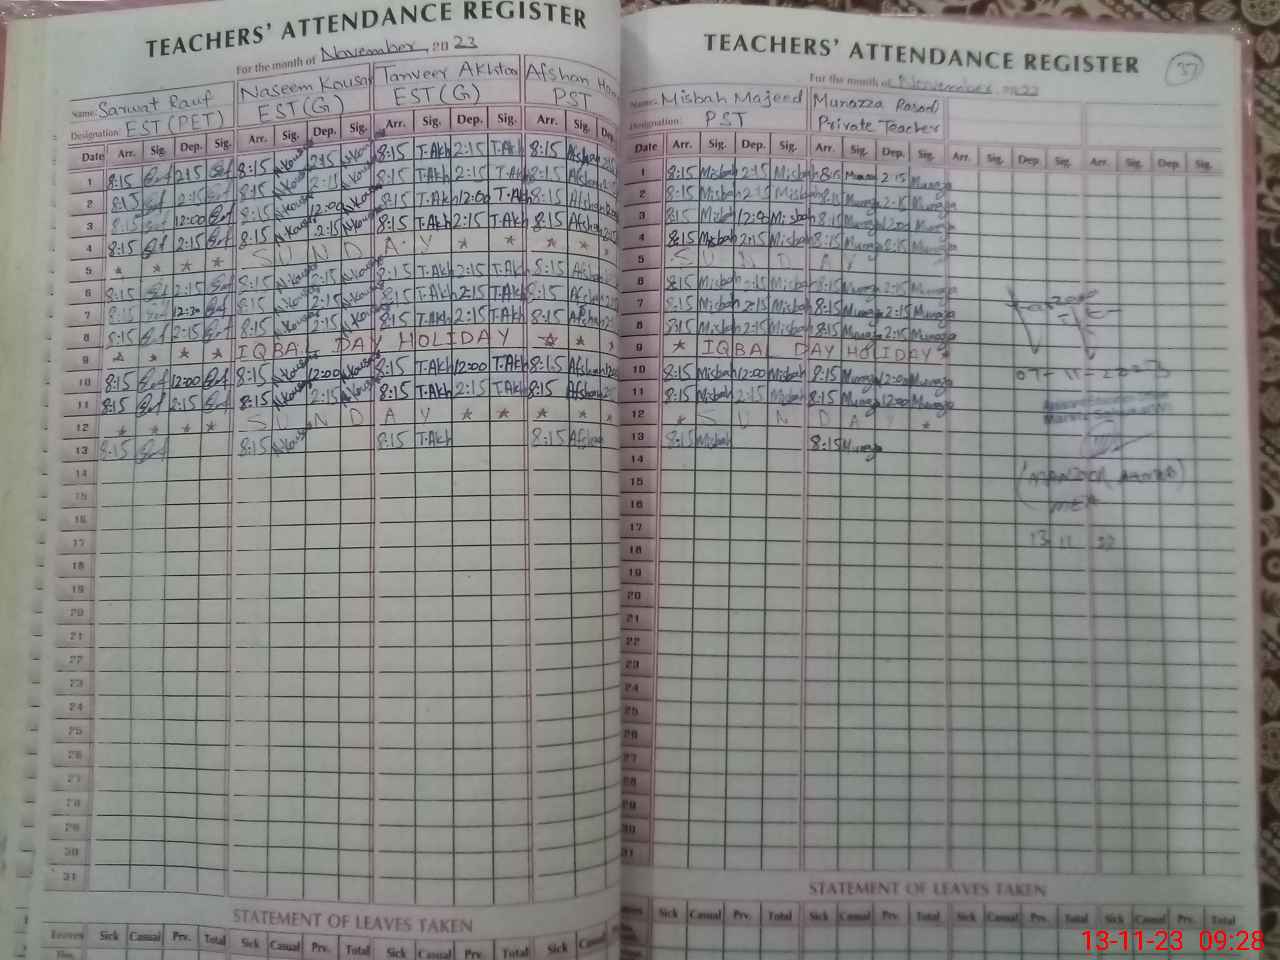 TEACHERS' ATTENDANCE REGISTER
For the month of November, 2023
Name: Sarwat Rauf Naseem Kousar Tanveer Akhtar Afshan
Designation: EST(PET) EST(G) EST(G) PST
Date Arr. Sig. Dep. Sig. Arr. Sig. Dep. Sig. Arr. Sig. Dep. Sig. Arr. Sig. Dep.
1 8:15 2:15 8:15 N.Kousar 2:15 N.Kousar 8:15 T.Akh 2:15 T.Akh 8:15 Afshan 2:15
2 8:15 2:15 8:15 N.Kousar 2:15 N.Kousar 8:15 T.Akh 2:15 T.Akh 8:15 Afshan
3 8:15 12:00 8:15 N.Kousar 12:00 N.Kousar 8:15 T.Akh 12:00 T.Akh 8:15 Afshan
4 8:15 2:15 8:15 N.Kousar 2:15 N.Kousar 8:15 T.Akh 2:15 T.Akh 8:15 Afshan
5 * * * * S U N D A Y * * * * *
6 8:15 2:15 8:15 N.Kousar 2:15 N.Kousar 8:15 T.Akh 2:15 T.Akh 8:15 Afshan
7 8:15 8:15 N.Kousar 2:15 N.Kousar 8:15 T.Akh 2:15 T.Akh 8:15 Afshan
8 8:15 2:15 8:15 N.Kousar 2:15 N.Kousar 8:15 T.Akh 2:15 T.Akh 8:15 Afshan
9 * * * * IQBAL DAY HOLIDAY * * *
10 8:15 12:00 8:15 N.Kousar 12:00 N.Kousar 8:15 T.Akh 12:00 T.Akh 8:15 Afshan
11 8:15 2:15 8:15 N.Kousar 2:15 N.Kousar 8:15 T.Akh 2:15 T.Akh 8:15 Afshan
12 * * * * S U N D A Y * * * * *
13 8:15 8:15 N.Kousar 8:15 T.Akh 8:15 Afshan
14
15
16
17
18
19
20
21
22
23
24
25
26
27
28
29
30
31
STATEMENT OF LEAVES TAKEN
Leaves Sick Casual Prv. Total Sick Casual Prv. Total Sick Casual Prv. Total Sick Casual
TEACHERS' ATTENDANCE REGISTER
37
For the month of November 2023
Name: Misbah Majeed Munazza
Designation: PST Private Teacher
Date Arr. Sig. Dep. Sig. Arr. Sig. Dep. Sig. Arr. Sig. Dep. Sig. Arr. Sig. Dep. Sig.
1 8:15 Misbah 2:15 Misbah 8:15 2:15
2 8:15 Misbah 2:15 Misbah 8:15 2:15
3 8:15 Misbah 12:00 Misbah 8:15 12:00
4 8:15 Misbah 2:15 Misbah 8:15
5 * S U N D A Y
6 8:15 Misbah 2:15 Misbah 8:15 2:15
7 8:15 Misbah 2:15 Misbah 8:15 2:15
8 8:15 Misbah 2:15 Misbah 8:15 2:15
9 * IQBAL DAY HOLIDAY *
10 8:15 Misbah 12:00 Misbah 8:15 12:00
11 8:15 Misbah 2:15 Misbah 8:15 12:00
12 * S U N D A Y *
13 8:15 Misbah 8:15
14
15
16
17
18
19
20
21
22
23
24
25
26
27
28
29
30
31
07-11-2023
MEA
13 11
STATEMENT OF LEAVES TAKEN
Sick Casual Prv. Total Sick Casual Prv. Total Sick Casual Prv. Total Sick Casual Prv. Total
13-11-23 09:28